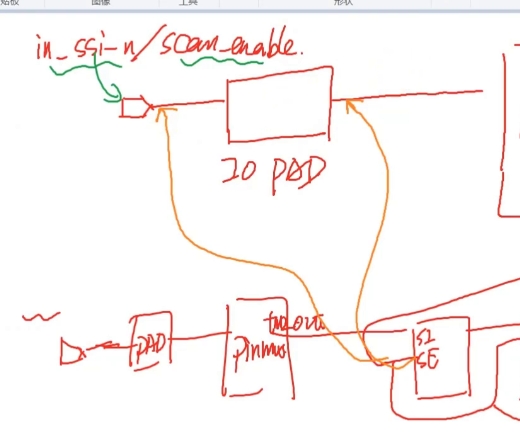 图像
工具
形状
in_ssi-n/scan_enable.
IO PAD
PAD
pinmux
SI
SE